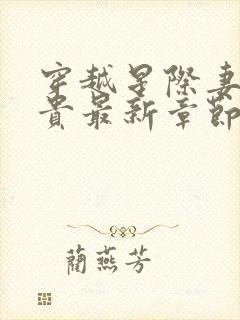 穿越星際妻
貴最新章節
蘭燕芳